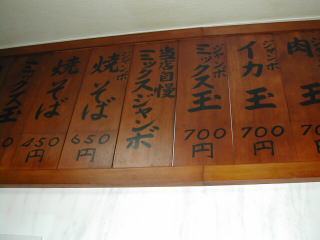 ジャンボ
肉玉
700円
ジャンボ
イカ玉
700円
ジャンボ
ミックス玉
700円
当店自慢
ミックスジャンボ
ジャンボ
焼そば
650円
焼そば
450円
ミックス玉
円